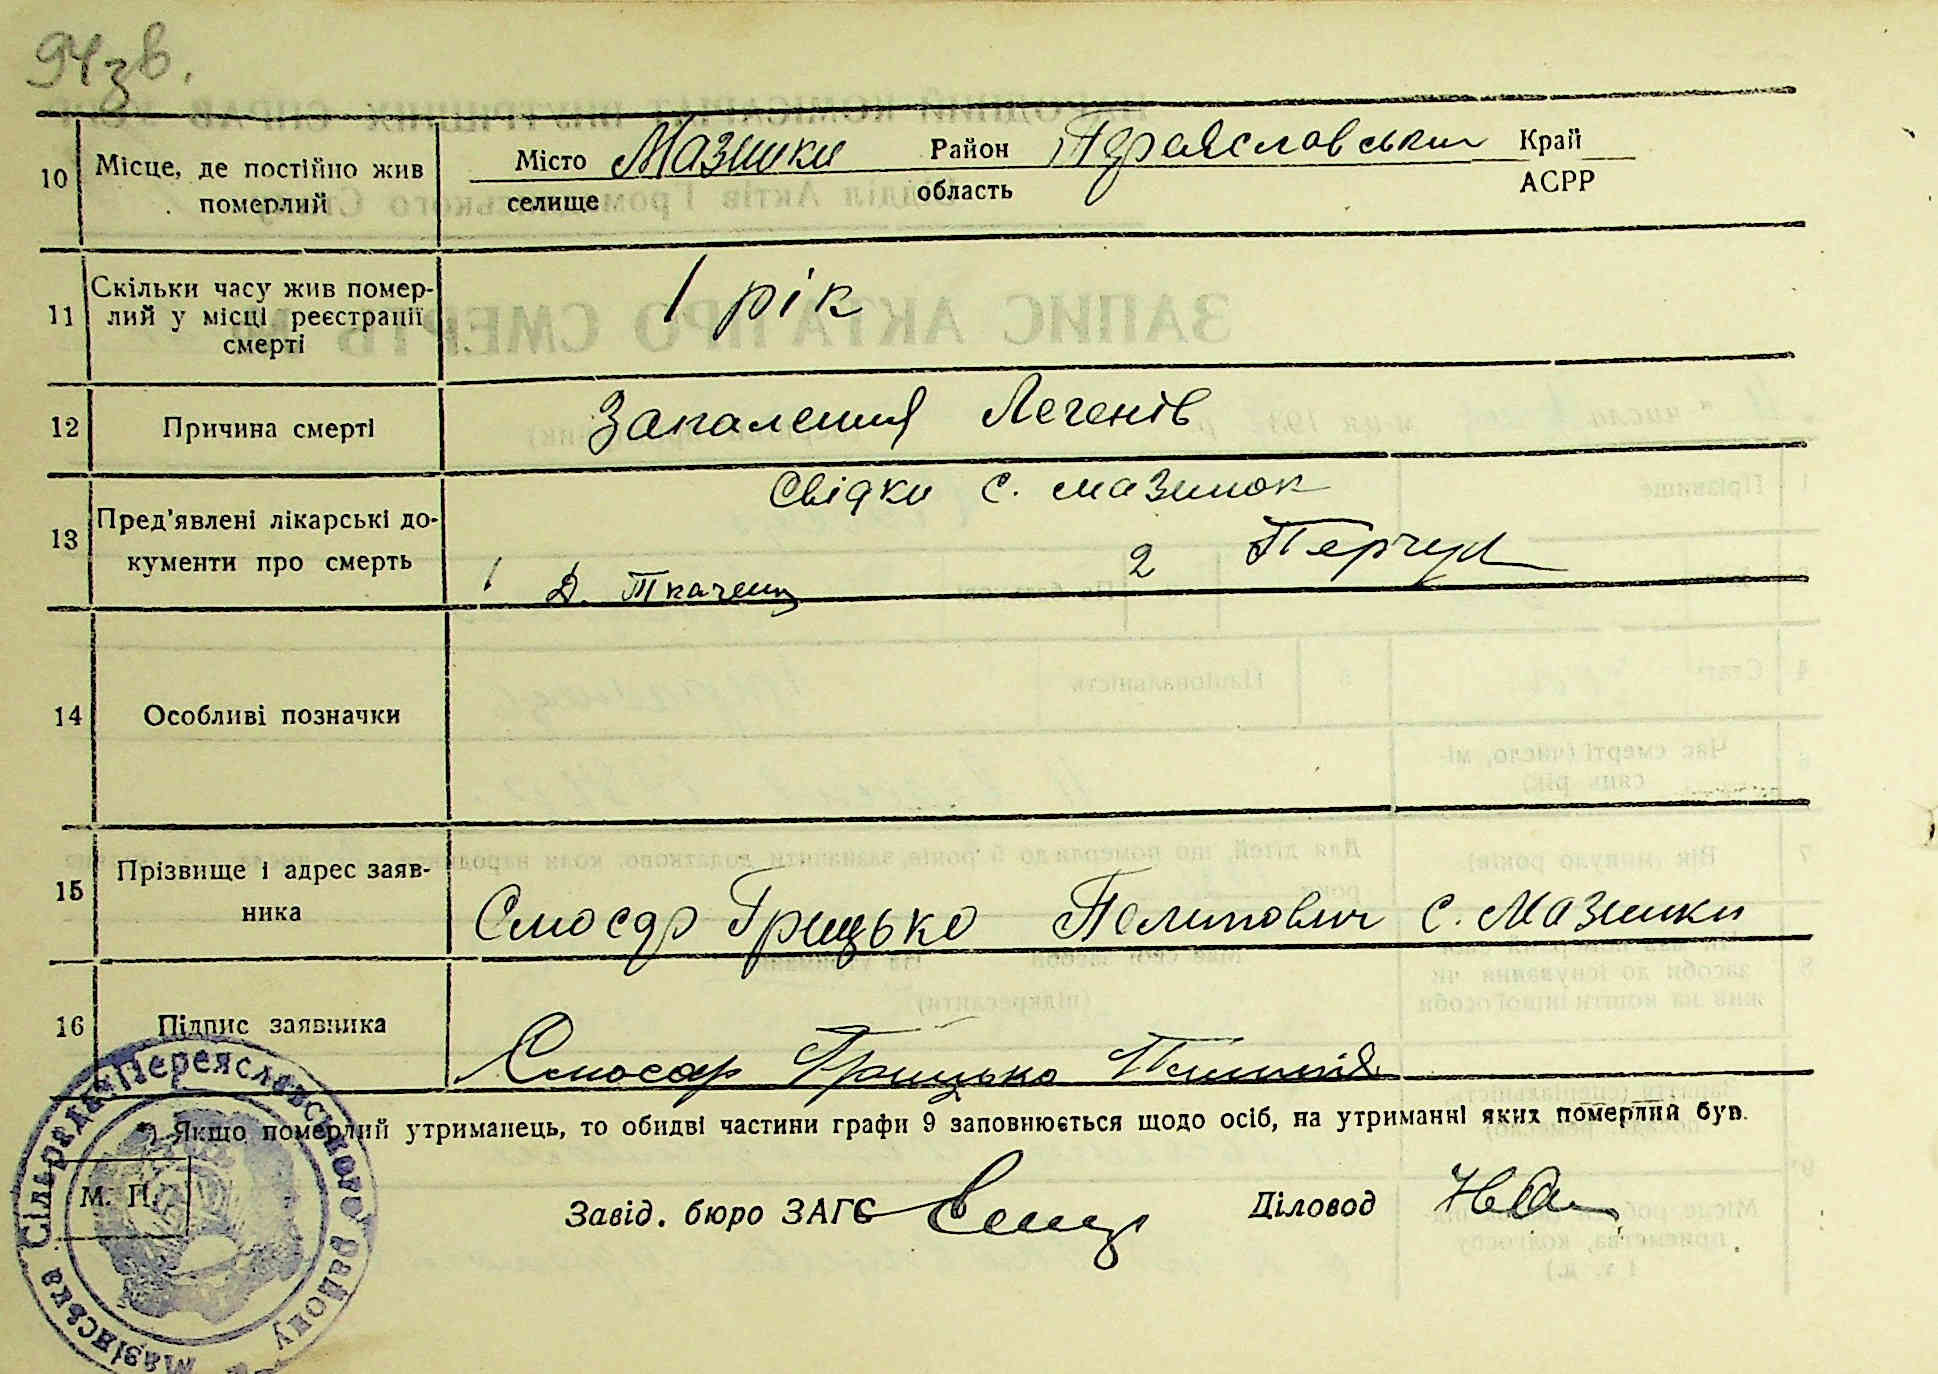 94зв.
10 Місце, де постійно жив померлий
Місто селище Мазінки Район область Переяславський Край АСРР
11 Скільки часу жив помер-
лий у місці реєстрації
смерті
1 рік
12 Причина смерті Запалення Легенів
13 Пред'явлені лікарські до-
кументи про смерть
Свідки с. Мазінок
1 Д. Ткаченко 2
14 Особливі позначки
15 Прізвище і адрес заяв-
ника
Слюсар Грицько Пилипович с. Мазінки
16 Підпис заявника Слюсар Грицько
*) Якщо померлий утриманець, то обидві частини графи 9 заповнюється щодо осіб, на утриманні яких померлий був.
М. П.
Завід. бюро ЗАГС Діловод
Сільрада Переяславського району